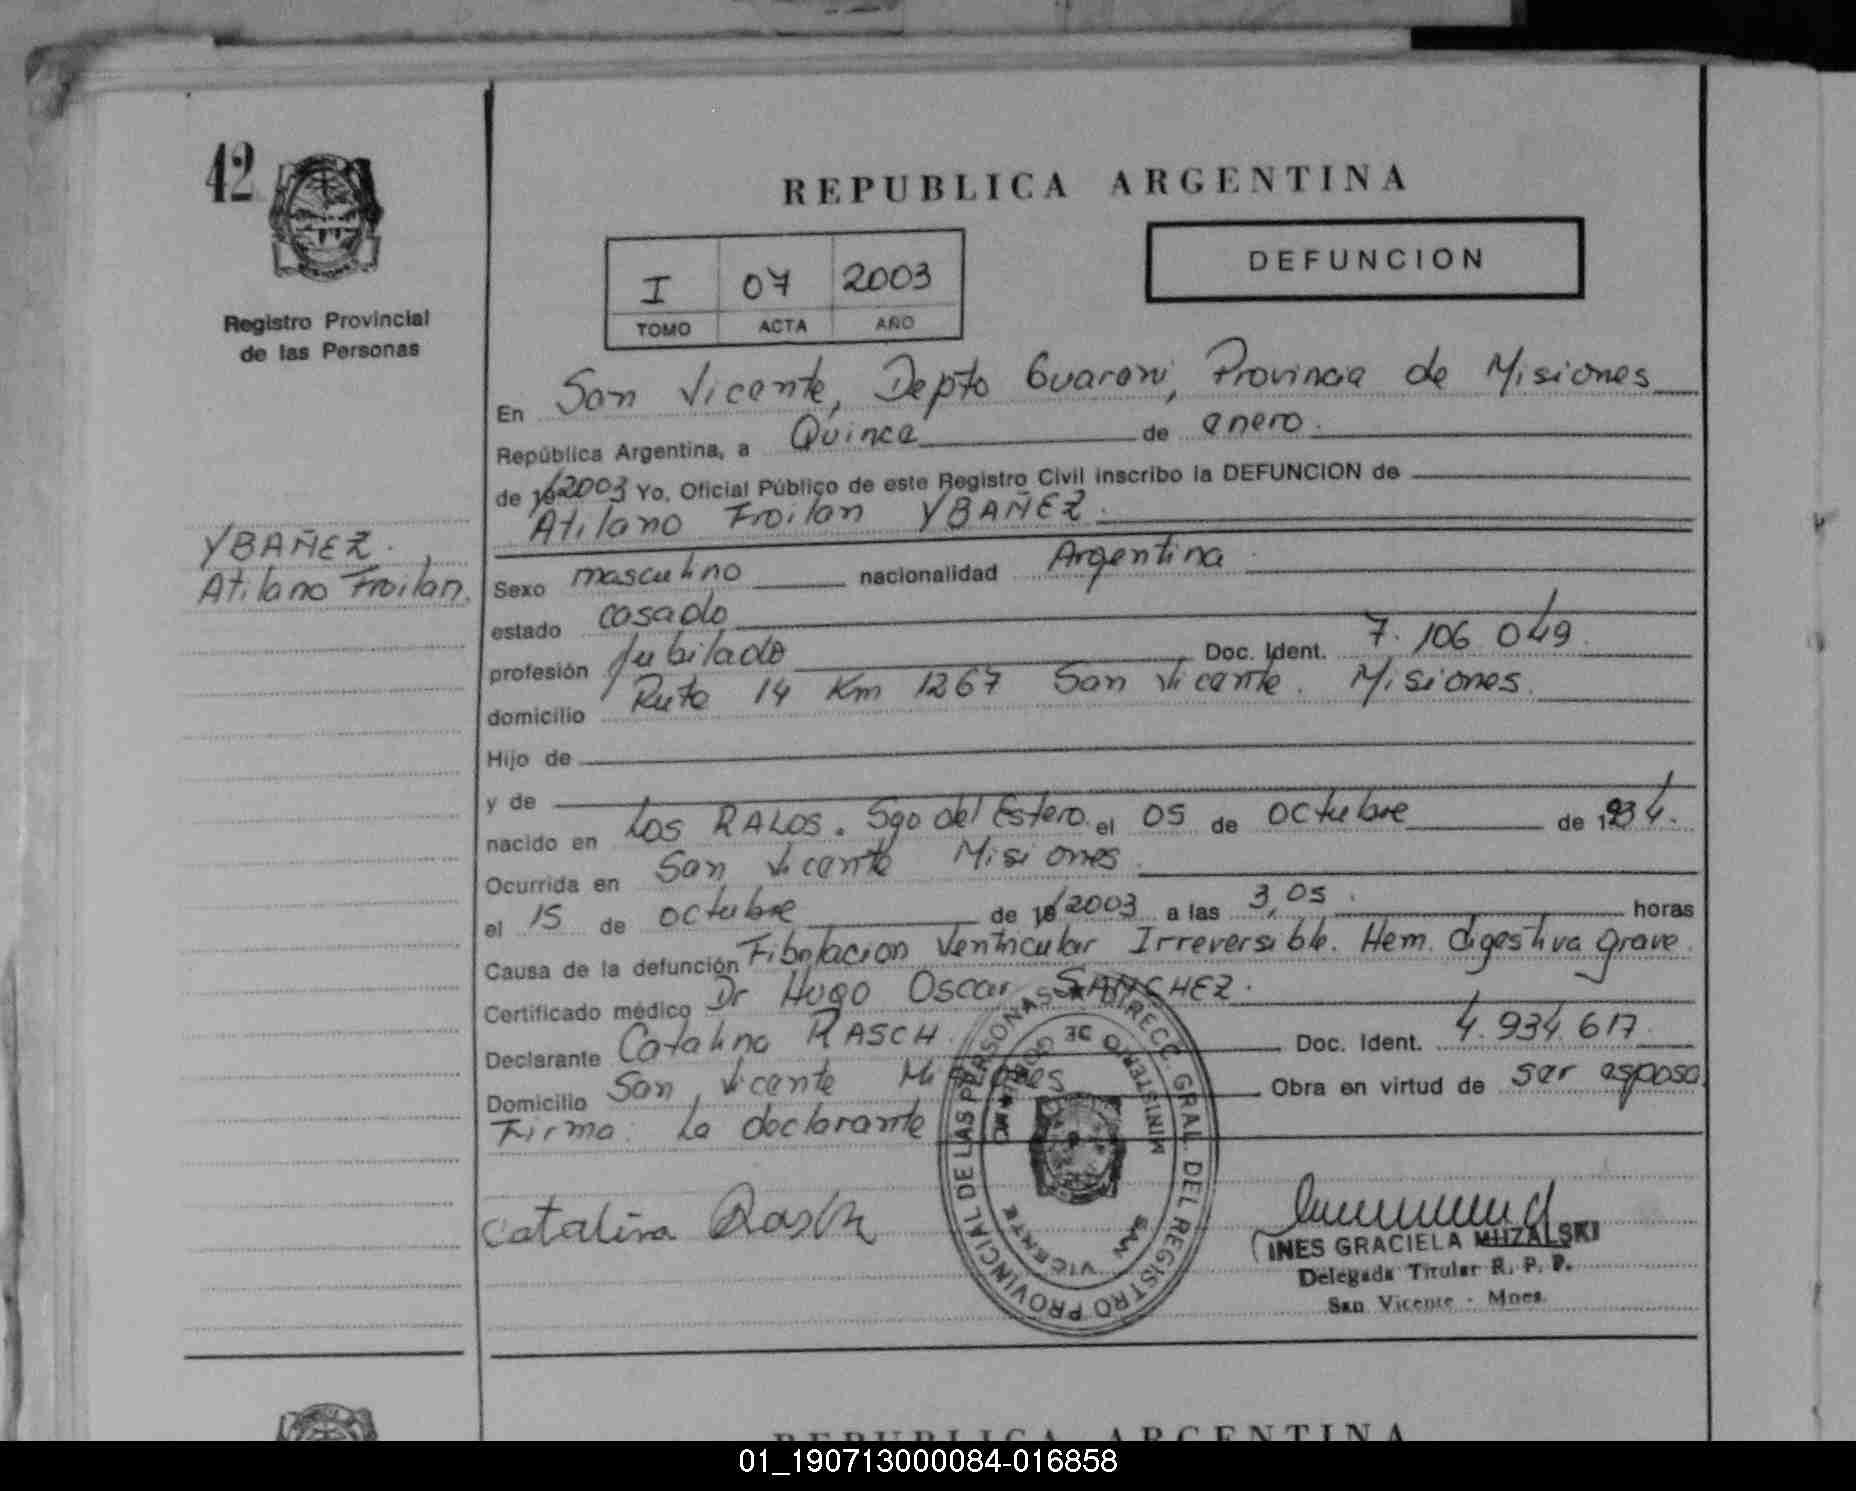 42
Registro Provincial
de las Personas
YBAÑEZ.
Atilano Froilan.
REPUBLICA ARGENTINA
DEFUNCION
I 07 2003
TOMO ACTA AÑO
En San Vicente, Depto Guarani, Provincia de Misiones
República Argentina, a Quince de enero.
de 2003 Yo, Oficial Público de este Registro Civil inscribo la DEFUNCION de
Atilano Froilan YBAÑEZ.
Sexo masculino nacionalidad Argentina
estado casado
profesión Jubilado Doc. Ident. 7.106 049
domicilio Ruta 14 Km 1267 San Vicente. Misiones.
Hijo de
y de
nacido en Los RALOS. Sgo del Estero. el 05 de octubre de 1934.
Ocurrida en San Vicente Misiones.
el 15 de octubre de 2003 a las 3,05. horas
Causa de la defunción Fibrilacion Ventricular Irreversible. Hem. digestiva grave.
Certificado médico Dr Hugo Oscar SANCHEZ.
Declarante Catalina RASCH. Doc. Ident. 4.934.617
Domicilio San Vicente Misiones Obra en virtud de ser esposa
Firma: La declarante
DIRECC. GRAL. DEL REGISTRO PROVINCIAL DE LAS PERSONAS
MINISTERIO DE
SAN VICENTE
Catalina Rasch
INES GRACIELA MUZALSKI
Delegada Titular R. P. P.
San Vicente - Mnes.
REPUBLICA ARGENTINA
01_190713000084-016858